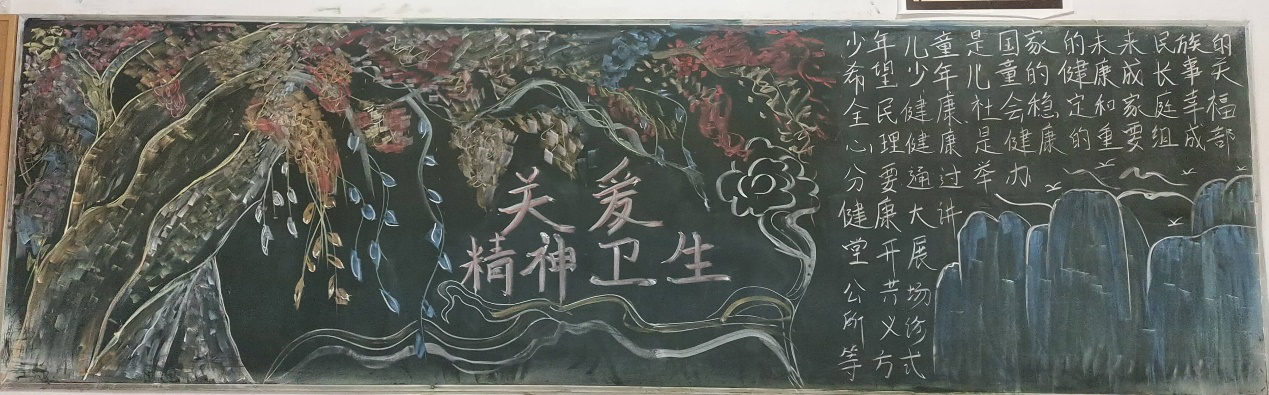 关爱
精神卫生
少年儿童是国家的未来民族的
希望少年儿童的健康成长事关
全民健康社会稳定和家庭幸福
心理健康是健康的重要组成部
分要通过举办
健康大讲
堂开展
公共场
所义诊
等方式